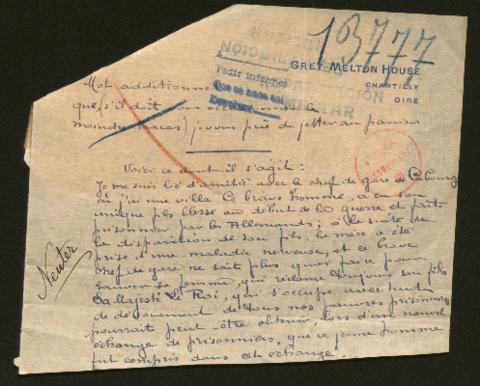 13777
GREY MELTON HOUSE
CHANTILLY
OISE
Mot additionne
que s'il doit
moindre tracas, je vous prie de jetter au panier
Voici ce dont il s'agit :
Je me suis lié d'amitié avec le chef de gare de Cabourg
où j'ai une villa. Ce brave homme, a eu son
unique fils blessé au début de la guerre et fait
prisonnier par les Allemands ; à la suite de
la disparition de son fils, la mère a été
prise d'une maladie nerveuse, et ce brave
chef de gare ne sait plus quoi faire pour
sauver sa femme, qui réclame toujours son fils
Sa Majesté Le Roi, qui s'occupe avec tant
de dévouement de tous nos pauvres prisonniers
pourrait peut-être obtenir, lors d'un nouvel
échange de prisonniers, que ce jeune homme
fut compris dans cet échange.
Neuter
Pedir informes
Que se hace así